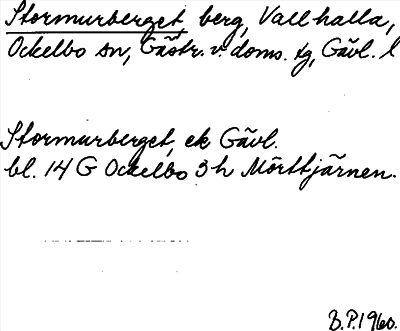 Stormurberget berg, Vallhalla,
Ockelbo sn, Gästr. v. doms. tg, Gävl. l
Stormurberget, ek Gävl.
bl. 14 G Ockelbo 3 h Mörttjärnen.
B.P. 1960.